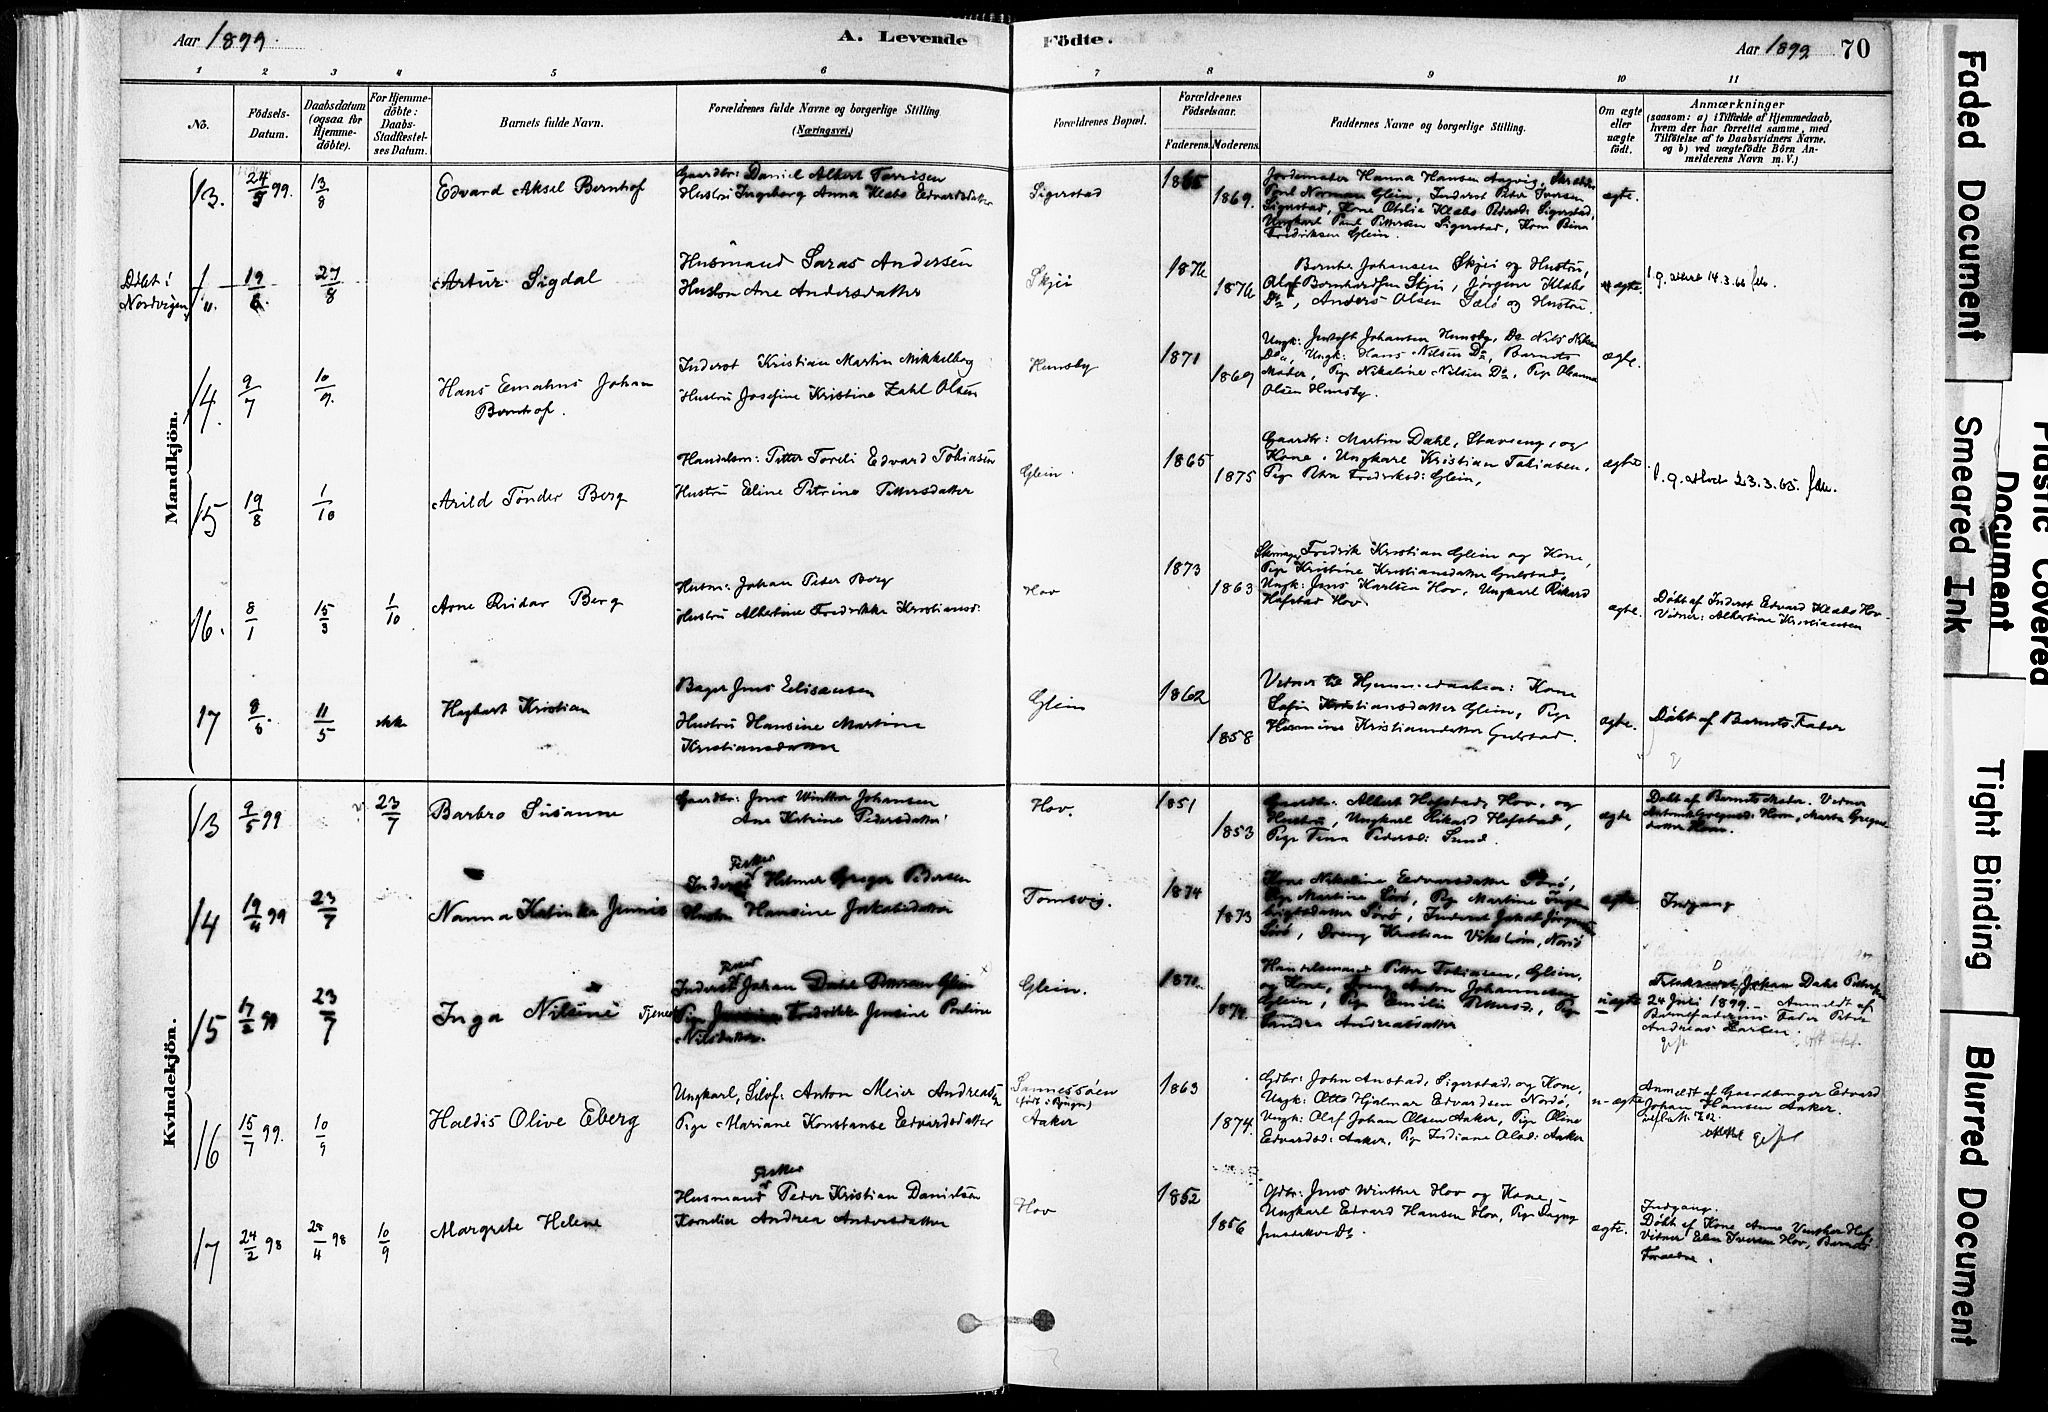 Aar 1899.
A. Levende
Födte.
Aar 1899
70
1 2 3 4 5 6 7 8 9 10 11
No.
Födsels-Datum.
Daabsdatum (ogsaa for Hjemmedöbte).
For Hjemmedöbte: Daabs-Stadfæstelses Datum.
Barnets fulde Navn.
Forældrenes fulde Navne og borgerlige Stilling (Næringsvei.)
Forældrenes Bopæl.
Forældrenes Födselsaar.
Faderens. Moderens.
Faddernes Navne og borgerlige Stilling.
Om ægte eller uægte födt.
Anmærkninger
(saasom: a) i Tilfælde af Hjemmedaab, hvem der har forrettet samme, med Tilföielse af to Daabsvidners Navne. og b) ved uægtefödte Börn Anmelderens Navn m. V.)
Mandkjön.
13. 24/5 99. 13/8
Edvard Aksel Bernhof
Gaardbr: Daniel Albert Torrisen
Hustru Ingeborg Anna Klabo Edvardsdatter
Sigerstad
1865
1869.
Jordemoder Hanna Hansen
Poul Norman Glein, Inderst Peter Iversen
Sigerstad, Kone Otelia Klabo Sigerstad,
Ungkarl Paul Pettersen Sigerstad, Kone Bina
Fredriksen Glein.
ægte.
Döbt i Nordvigen
19/6 27/8
Artur Sigdal
Husmand Saras Andersen
Hustru Ane Andersdatter
Skjei
1876
1876
Bernh. Johansen Skjei og Hustru,
Olaf Bernhardsen Skjei, Jörgine Klabo
Do, Anders Olsen Salö og Hustru
ægte.
14.3.66
14. 9/7 10/9
Hans Emahus Johan
Bernhof.
Inderst Kristian Martin Mikkelborg
Hustru Josefine Kristine Zahl Olsen
Hemsby
1871
1869
Ungk: Johansen Hemsby, Do Nils
Do, Ungk: Hans Nilsen Do, Barnets
Moder, Pige Nikoline Nilsen Do, Pige Oleanna
Olsen Hemsby.
ægte.
15 19/8 1/10
Arild Tönder Berg
Handelsm: Petter Toreli Edvard Tobiasen
Hustru Eline Petrine Pettersdatter
Glein
1865
1875
Gaardbr: Martin Dahl, Stavseng, og
Kone, Ungkarl Kristian Tobiasen,
Pige Petra Fredriksd: Glein,
ægte
23.3.65.
16. 8/1 15/3 1/10
Arne Reidar Berg
Husm: Johan Peter Berg
Hustru Albertine Fredrikke Kristiansd:
Hov
1873
1863
Fredrik Kristian Glein og Kone,
Pige Kristine Kristiansdatter Gulstad,
Ungk: Jens Karlsen Hov, Ungkarl Rikard
Hofstad Hov
ægte.
Döbt af Inderst Edvard Klabo Hov
Vidner: Albertine Kristiansen
17 8/5. 11/5 ikke
Hagbart Kristian
Bager Jens Eelisæusen
Hustru Hansine Martine
Kristiansdatter
Glein
1862
1858
Vidner til Hjemmedaaben: Kone
Sofie Kristiansdatter Glein, Pige
Hermine Kristiansdatter Gulstad.
ægte.
Döbt af Barnets Fader
Kvindekjön.
13 9/5 99 23/7
Barbro Susanne
Gaardbr: Jens Winther Johansen
Ane Katrine Pedersdatter
Hov.
1851
1853
Gaardbr: Albert Hofstad, Hov, og
Hustru, Ungkarl Rikard Hofstad,
Pige Tina Pedersd: Sund.
ægte
Döbt af Barnets Moder. Vidner
14 19/4 99 23/7
Nanna Katinka Jennie
Fisker
Inderst Helmer Greger Pedersen
Hustru Hansine Jakobsdatter
Tomsvig.
1874
1873
Kone Nikoline Edvardsdatter
Pige Martine Sörö, Pige Martine
Sörö, Inderst Jakob
Sörö, Dreng Kristian Vikström, Nordö
ægte
Indgang
15 17/2 99 23/7
Inga Nilsine
Fisker
Inderst Johan Dahl Pettersen Glein
Fredrikke Jensine Pauline
Nilsdatter.
Glein.
Handelsmand Petter Tobiasen, Glein,
og Kone, Dreng Anton Johannesen
Glein, Pige Emilie Pettersd:, Pige
Sandra Andreasdatter
uægte
Johan Dahl
24 Juli 1899. Anmeldt af
Barnefaderens Fader Peter
Andreas Larsen.
16 15/7 99. 10/9
Haldis Olive Eberg
Ungkarl, Anton Meier Andreasen
Pige Mariane Konstanse Edvardsdatter
Sannessöen
(född i Bjugn)
Aaker
1863
1874.
Gdbr: John Anstad, Sigerstad, og Kone,
Ungk: Otto Hjalmar Edvardsen Nordö,
Ungk: Olaf Johan Olsen Aaker, Pige Oline
Edvardsd: Aaker, Pige Indiane Olsd: Aaker
u-ægte
Anmeldt af Gaardbruger Edvard
Johan Hansen Aaker.
17 24/2 98 28/4 98 10/9
Margrete Helene
Fisker
Husmand Peder Kristian Danielsen
Kornelia Andrea Andersdatter
Hov
1852
1856
Gdbr: Jens Winther Hov og Kone,
Ungkarl Edvard Hansen Hov, Pige Dagny
ægte.
Indgang.
Döbt af Kone Anne Winther Hov,
Vidner Elen Iversen Hov, Barnets
Forældre.
Faded Document
Smeared Ink
Plastic Covered Document
Tight Binding
Blurred Document